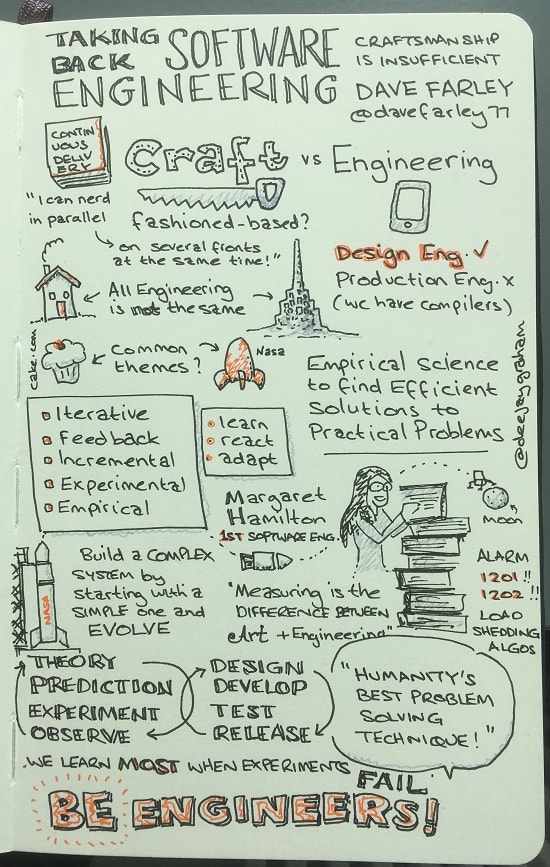 TAKING
BACK
SOFTWARE
ENGINEERING
CRAFTSMANSHIP
IS INSUFFICIENT
DAVE FARLEY
@davefarley77
CONTIN
UOUS
DELIV
ERY
Craft vs Engineering
"I can nerd
in parallel
on several fronts
at the same time!"
fashioned-based?
Design Eng. ✓
Production Eng. x
(we have compilers)
All Engineering
is not the same
cake.com
Common
themes?
Nasa
Empirical Science
to find Efficient
Solutions to
Practical Problems
@deejaygraham
Iterative
Feedback
Incremental
Experimental
Empirical
learn
react
adapt
Margaret
Hamilton
1ST SOFTWARE ENG.
MOON
ALARM
1201 !!
1202 !!
LOAD
SHEDDING
ALGOS
NASA
Build a COMPLEX
SYSTEM by
starting with a
SIMPLE one and
EVOLVE
"Measuring is the
DIFFERENCE BETWEEN
Art + Engineering"
THEORY
PREDICTION
EXPERIMENT
OBSERVE
DESIGN
DEVELOP
TEST
RELEASE
"HUMANITY'S
BEST PROBLEM
SOLVING
TECHNIQUE!"
WE LEARN MOST WHEN EXPERIMENTS FAIL
BE ENGINEERS!